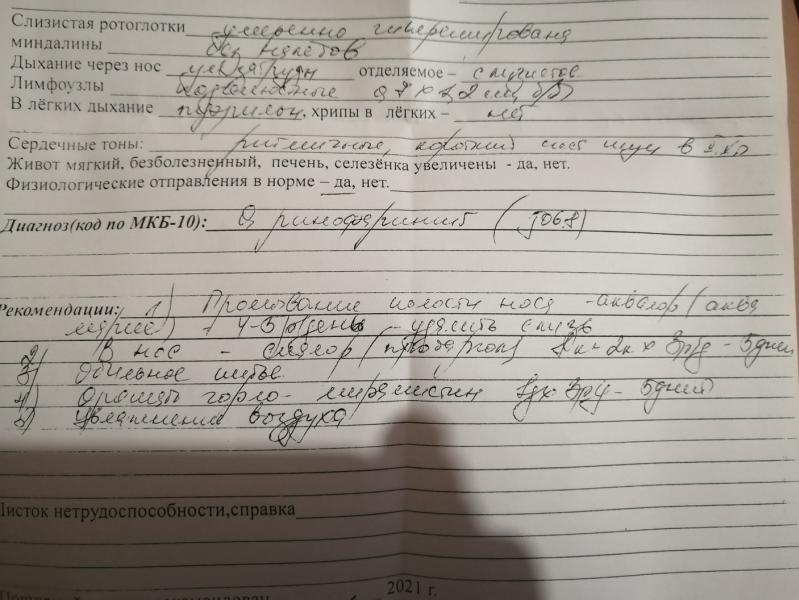 Слизистая ротоглотки умеренно гиперемирована
миндалины без налетов
Дыхание через нос отделяемое – слизистое
Лимфоузлы
В лёгких дыхание , хрипы в лёгких – нет
Сердечные тоны: ритмичные, короткий сист шум в
Живот мягкий, безболезненный, печень, селезёнка увеличены - да, нет.
Физиологические отправления в норме – да, нет.
Диагноз(код по МКБ-10): О ринофарингит (j06.8)
Рекомендации: 1) Промывание полости носа - аквалор (аква
марис) 4-5 р/день - удалить слизь
2) В нос - сиалор (протаргол) 1к - 2к х 3р/д - 5дней
3) Обильное питье
4) Орошать горло - мирамистин 1д х 3р/д - 5дней
5) Увлажнение воздуха
Листок нетрудоспособности,справка
2021 г.